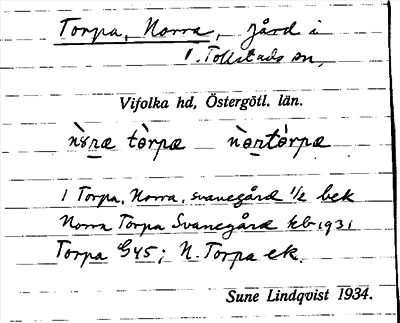 Torpa, Norra, gård i
V. Tollstads sn,
Vifolka hd, Östergötl. län.
tòrpæ
1 Torpa, Norra, svanegård 1/2 bek
Norra Torpa Svanegård kb 1931
Torpa G45; N. Torpa ek.
Sune Lindqvist 1934.